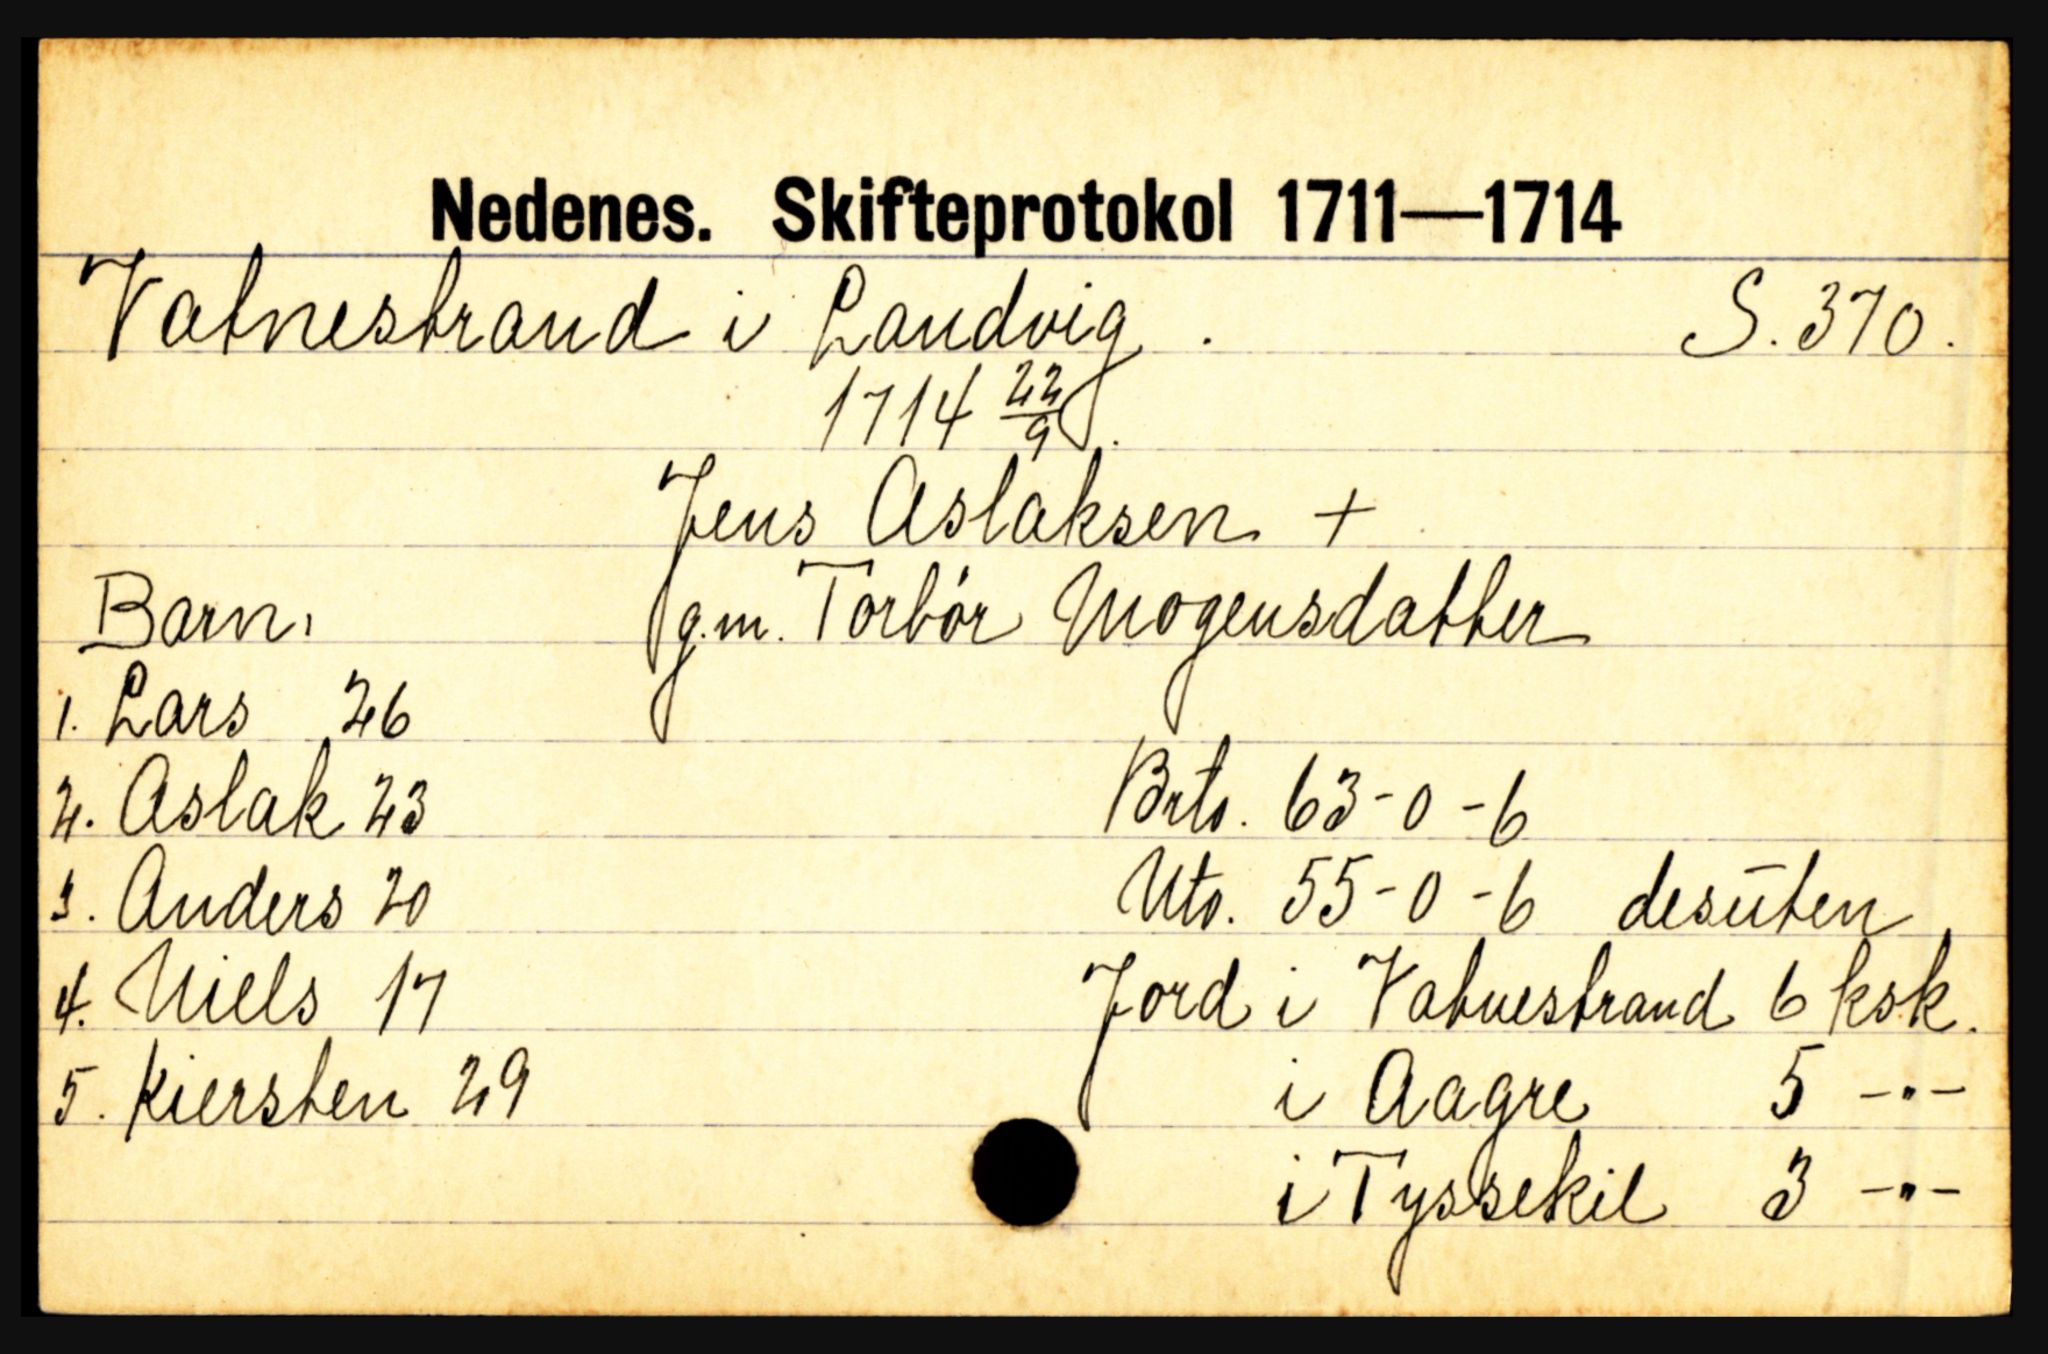 Nedenes. Skifteprotokol 1711—1714
Vatnestrand i Landvig. S. 370.
1714 22/9.
Jens Aslaksen +
Barn, g.m. Torbør Mogensdatter
1. Lars 26
2. Aslak 23 Brto. 63-0-6
3. Anders 20 Nto. 55-0-6 desūten
4. Niels 17 Jord i Vatnestrand 6 ksk.
5. Kiersten 29 i Aagre 5 -"-
i Tyssekil 3 -"-